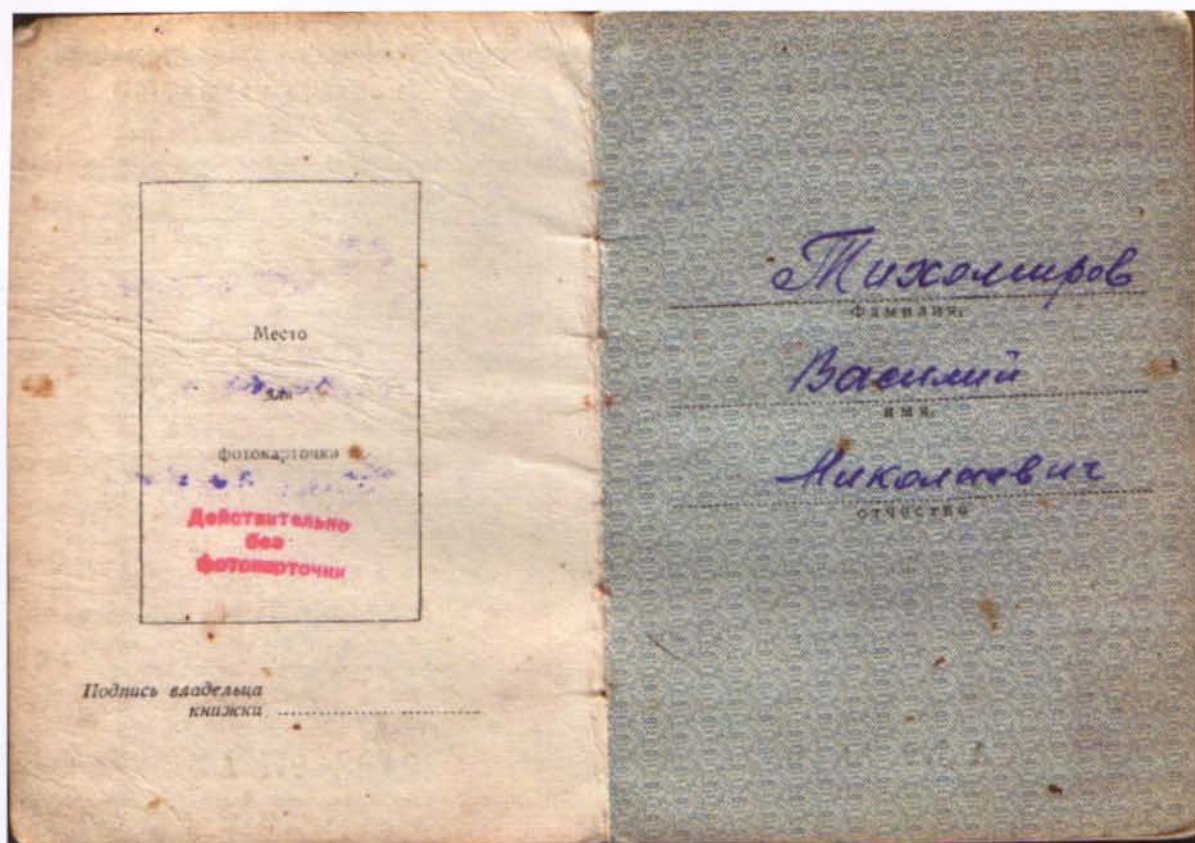 Место
для
фотокарточки
Действительно
без
фотокарточки
Подпись владельца
книжки
Тихомиров
фамилия,
Василий
имя,
Николаевич
отчество